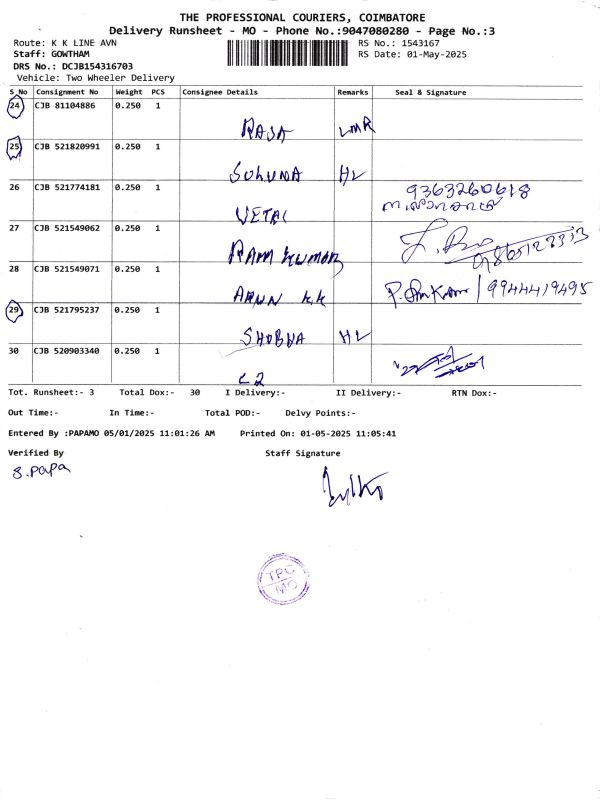 THE PROFESSIONAL COURIERS, COIMBATORE
Delivery Runsheet - MO - Phone No.:9047080280 - Page No.:3
Route: K K LINE AVN RS No.: 1543167
Staff: GOWTHAM RS Date: 01-May-2025
DRS No.: DCJB154316703
Vehicle: Two Wheeler Delivery
S_No Consignment No Weight PCS Consignee Details Remarks Seal & Signature
24 CJB 81104886 0.250 1
RAJA LMR
25 CJB 521820991 0.250 1
SUHUNA HL
26 CJB 521774181 0.250 1 9363260618
VETAL
27 CJB 521549062 0.250 1
RAM KUMAR 9865122313
28 CJB 521549071 0.250 1
ARUN K.K 9944419495
29 CJB 521795237 0.250 1
SHOBHA HL
30 CJB 520903340 0.250 1
L2
Tot. Runsheet:- 3 Total Dox:- 30 I Delivery:- II Delivery:- RTN Dox:-
Out Time:- In Time:- Total POD:- Delvy Points:-
Entered By :PAPAMO 05/01/2025 11:01:26 AM Printed On: 01-05-2025 11:05:41
Verified By Staff Signature
S.PAPA
TPC
MO